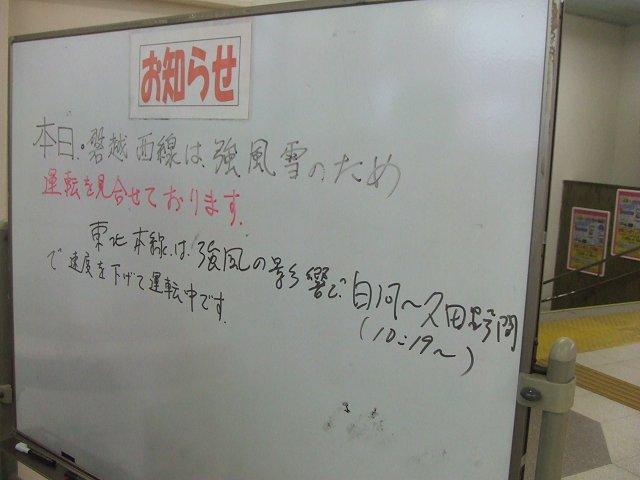 お知らせ
本日。磐越西線は、強風雪のため
運転を見合せております。
東北本線は、強風の影響で、白河〜久田野間
(10:19〜)
で速度を下げて運転中です。